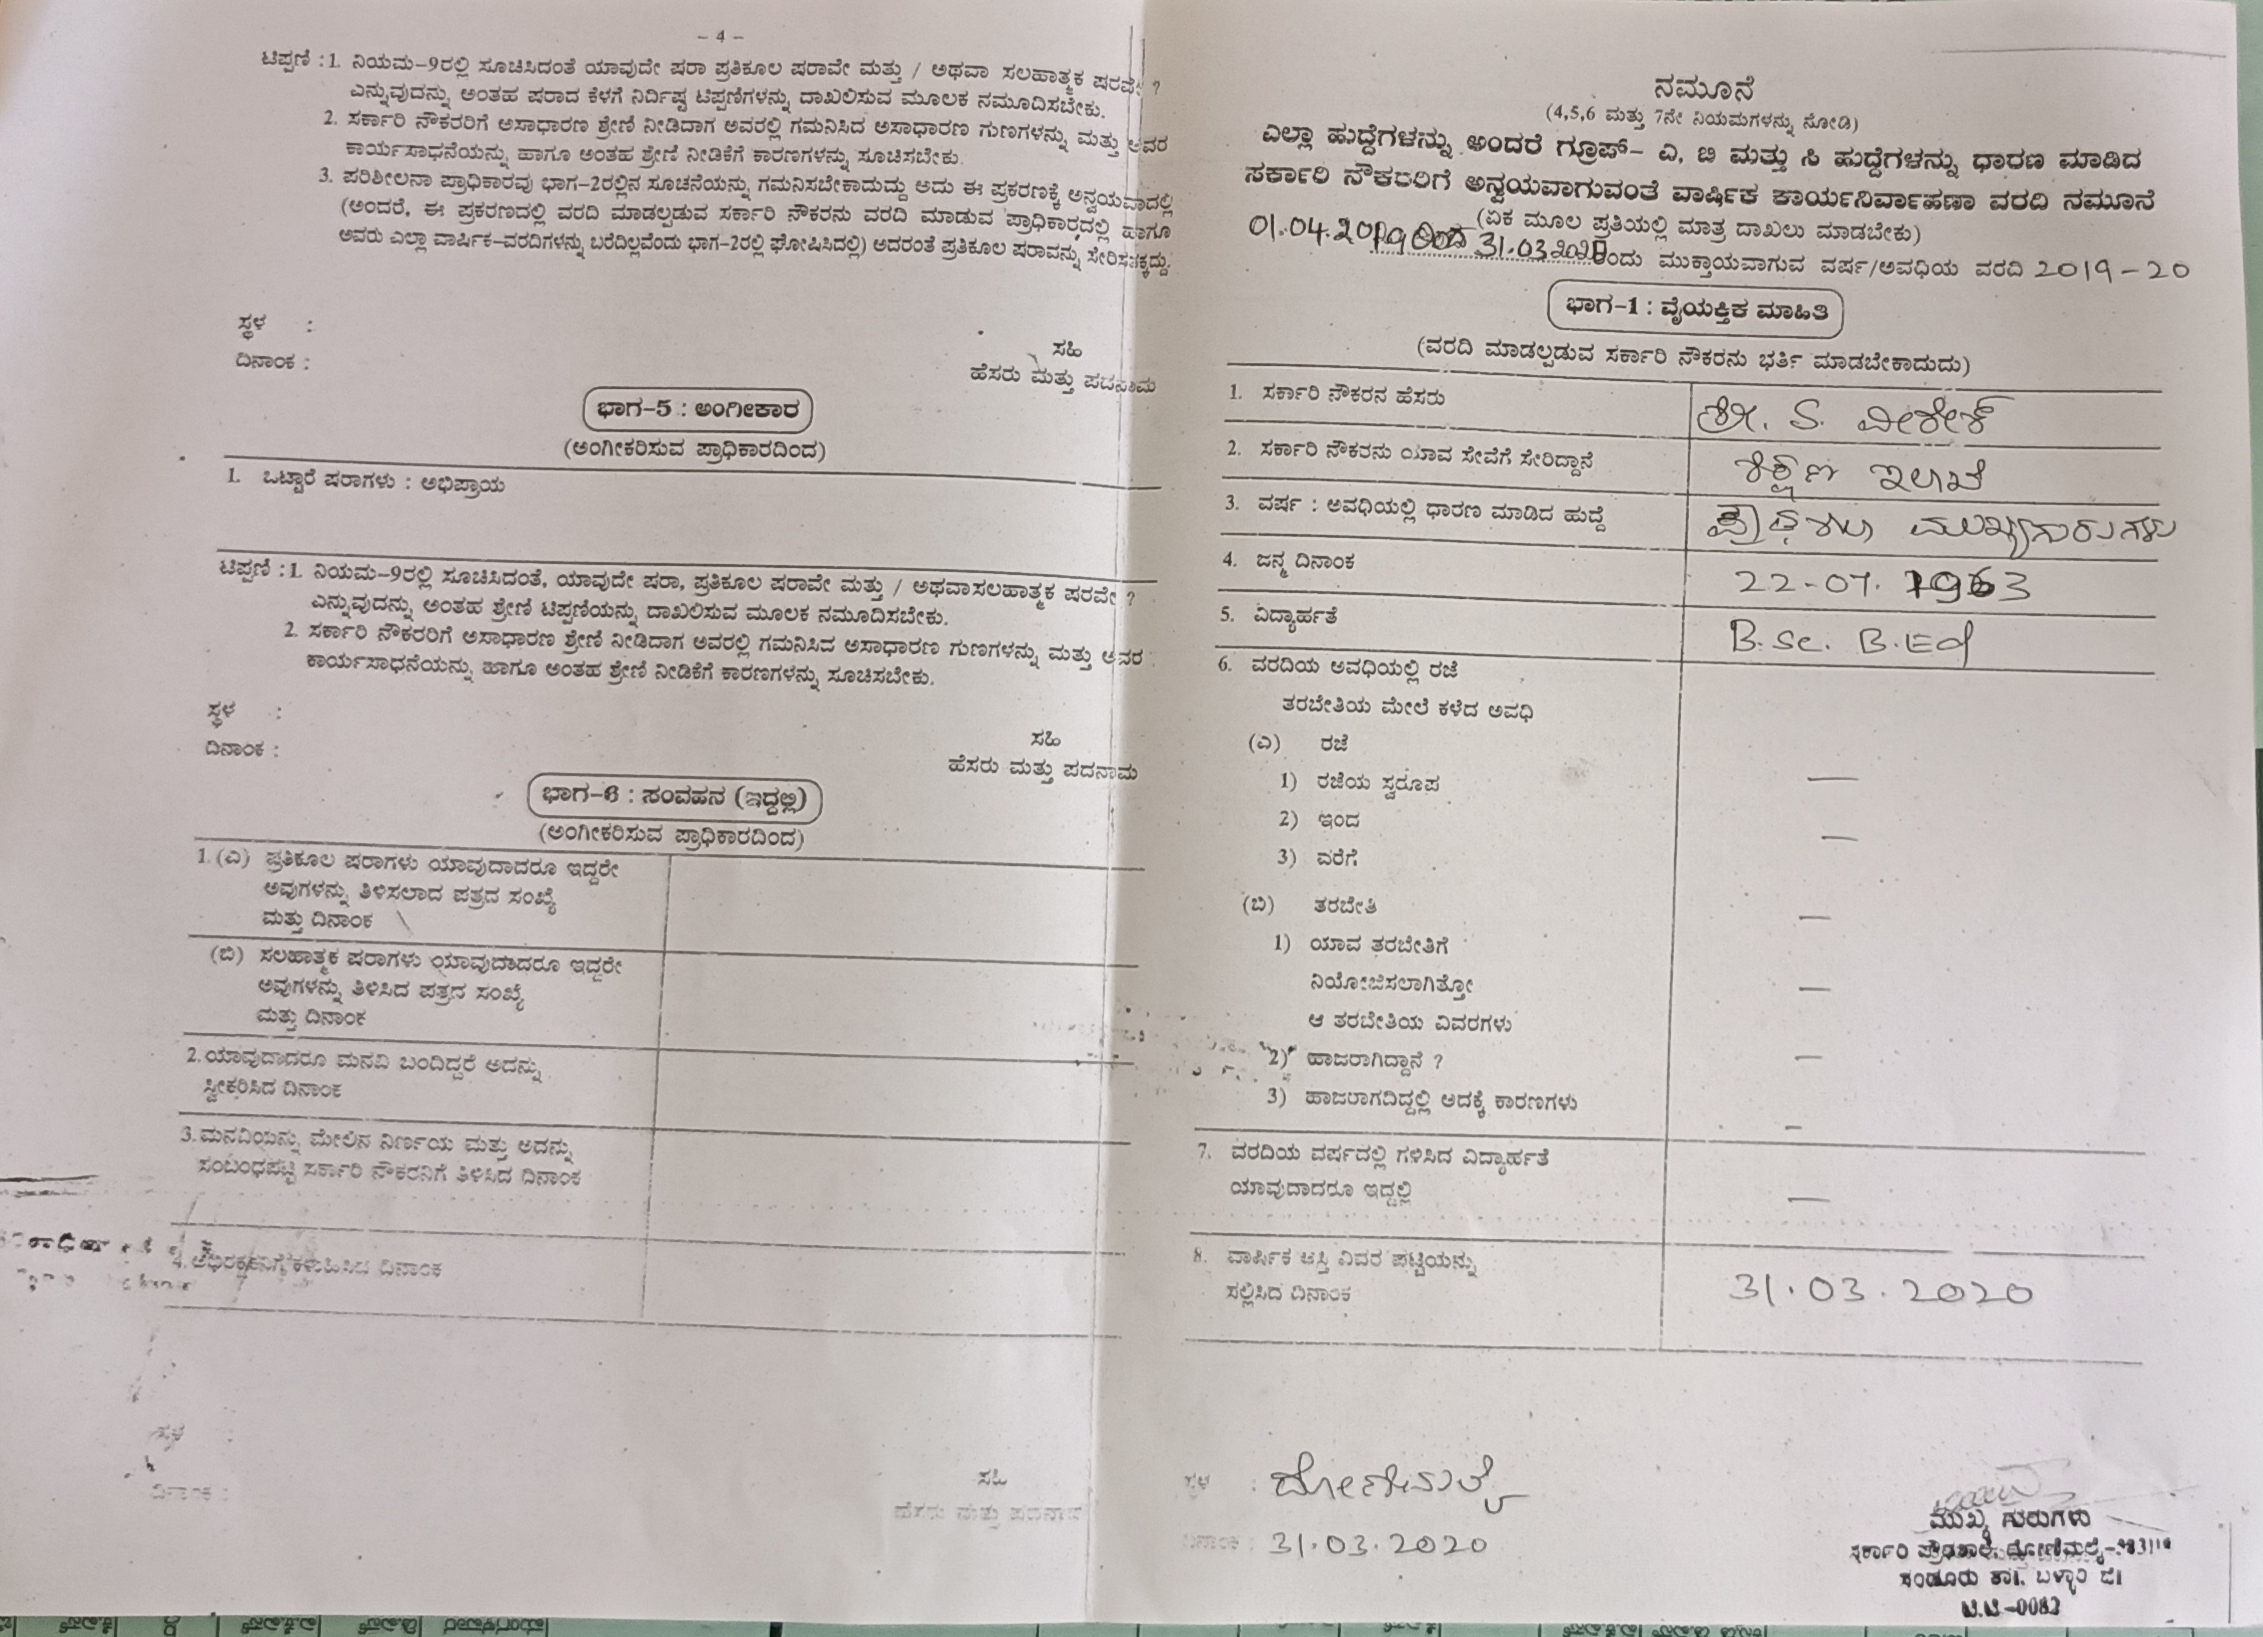 – 4 –
ಟಿಪ್ಪಣಿ : 1. ನಿಯಮ–9ರಲ್ಲಿ ಸೂಚಿಸಿದಂತೆ ಯಾವುದೇ ಷರಾ ಪ್ರತಿಕೂಲ ಷರಾವೇ ಮತ್ತು / ಅಥವಾ ಸಲಹಾತ್ಮಕ ಷರವೇ ?
ಎನ್ನುವುದನ್ನು ಅಂತಹ ಷರಾದ ಕೆಳಗೆ ನಿರ್ದಿಷ್ಟ ಟಿಪ್ಪಣಿಗಳನ್ನು ದಾಖಲಿಸುವ ಮೂಲಕ ನಮೂದಿಸಬೇಕು.
2. ಸರ್ಕಾರಿ ನೌಕರರಿಗೆ ಅಸಾಧಾರಣ ಶ್ರೇಣಿ ನೀಡಿದಾಗ ಅವರಲ್ಲಿ ಗಮನಿಸಿದ ಅಸಾಧಾರಣ ಗುಣಗಳನ್ನು ಮತ್ತು ಅವರ
ಕಾರ್ಯಸಾಧನೆಯನ್ನು ಹಾಗೂ ಅಂತಹ ಶ್ರೇಣಿ ನೀಡಿಕೆಗೆ ಕಾರಣಗಳನ್ನು ಸೂಚಿಸಬೇಕು.
3. ಪರಿಶೀಲನಾ ಪ್ರಾಧಿಕಾರವು ಭಾಗ–2ರಲ್ಲಿನ ಸೂಚನೆಯನ್ನು ಗಮನಿಸಬೇಕಾದುದ್ದು ಅದು ಈ ಪ್ರಕರಣಕ್ಕೆ ಅನ್ವಯವಾದಲ್ಲಿ
(ಅಂದರೆ, ಈ ಪ್ರಕರಣದಲ್ಲಿ ವರದಿ ಮಾಡಲ್ಪಡುವ ಸರ್ಕಾರಿ ನೌಕರನು ವರದಿ ಮಾಡುವ ಪ್ರಾಧಿಕಾರ್ದಲ್ಲಿ ಹಾಗೂ
ಅವರು ಎಲ್ಲಾ ವಾರ್ಷಿಕ–ವರದಿಗಳನ್ನು ಬರೆದಿಲ್ಲವೆಂದು ಭಾಗ–2ರಲ್ಲಿ ಘೋಷಿಸಿದಲ್ಲಿ) ಅದರಂತೆ ಪ್ರತಿಕೂಲ ಷರಾವನ್ನು ಸೇರಿಸತಕ್ಕದ್ದು.
ಸ್ಥಳ :
ದಿನಾಂಕ :
ಸಹಿ
ಹೆಸರು ಮತ್ತು ಪದನಾಮ
ಭಾಗ–5 : ಅಂಗೀಕಾರ
(ಅಂಗೀಕರಿಸುವ ಪ್ರಾಧಿಕಾರದಿಂದ)
1. ಒಟ್ಟಾರೆ ಷರಾಗಳು : ಅಭಿಪ್ರಾಯ
ಟಿಪ್ಪಣಿ : 1. ನಿಯಮ–9ರಲ್ಲಿ ಸೂಚಿಸಿದಂತೆ, ಯಾವುದೇ ಷರಾ, ಪ್ರತಿಕೂಲ ಷರಾವೇ ಮತ್ತು / ಅಥವಾಸಲಹಾತ್ಮಕ ಷರವೇ ?
ಎನ್ನುವುದನ್ನು ಅಂತಹ ಶ್ರೇಣಿ ಟಿಪ್ಪಣಿಯನ್ನು ದಾಖಲಿಸುವ ಮೂಲಕ ನಮೂದಿಸಬೇಕು.
2. ಸರ್ಕಾರಿ ನೌಕರರಿಗೆ ಅಸಾಧಾರಣ ಶ್ರೇಣಿ ನೀಡಿದಾಗ ಅವರಲ್ಲಿ ಗಮನಿಸಿದ ಅಸಾಧಾರಣ ಗುಣಗಳನ್ನು ಮತ್ತು ಅವರ
ಕಾರ್ಯಸಾಧನೆಯನ್ನು ಹಾಗೂ ಅಂತಹ ಶ್ರೇಣಿ ನೀಡಿಕೆಗೆ ಕಾರಣಗಳನ್ನು ಸೂಚಿಸಬೇಕು.
ಸ್ಥಳ :
ದಿನಾಂಕ :
ಸಹಿ
ಹೆಸರು ಮತ್ತು ಪದನಾಮ
ಭಾಗ–6 : ಸಂವಹನ (ಇದ್ದಲ್ಲಿ)
(ಅಂಗೀಕರಿಸುವ ಪ್ರಾಧಿಕಾರದಿಂದ)
1. (ಎ) ಪ್ರತಿಕೂಲ ಷರಾಗಳು ಯಾವುದಾದರೂ ಇದ್ದರೇ
ಅವುಗಳನ್ನು ತಿಳಿಸಲಾದ ಪತ್ರದ ಸಂಖ್ಯೆ
ಮತ್ತು ದಿನಾಂಕ
(ಬಿ) ಸಲಹಾತ್ಮಕ ಷರಾಗಳು ಯಾವುದಾದರೂ ಇದ್ದರೇ
ಅವುಗಳನ್ನು ತಿಳಿಸಿದ ಪತ್ರದ ಸಂಖ್ಯೆ
ಮತ್ತು ದಿನಾಂಕ
2. ಯಾವುದಾದರೂ ಮನವಿ ಬಂದಿದ್ದರೆ ಅದನ್ನು
ಸ್ವೀಕರಿಸಿದ ದಿನಾಂಕ
3. ಮನವಿಯನ್ನು ಮೇಲಿನ ನಿರ್ಣಯ ಮತ್ತು ಅದನ್ನು
ಸಂಬಂಧಪಟ್ಟ ಸರ್ಕಾರಿ ನೌಕರನಿಗೆ ತಿಳಿಸಿದ ದಿನಾಂಕ
4. ಅಭಿರಕ್ಷಕನಿಗೆ ಕಳುಹಿಸಿದ ದಿನಾಂಕ
ಸ್ಥಳ :
ದಿನಾಂಕ :
ಸಹಿ
ಹೆಸರು ಮತ್ತು ಪದನಾಮ
ನಮೂನೆ
(4,5,6 ಮತ್ತು 7ನೇ ನಿಯಮಗಳನ್ನು ನೋಡಿ)
ಎಲ್ಲಾ ಹುದ್ದೆಗಳನ್ನು ಅಂದರೆ ಗ್ರೂಪ್– ಎ, ಬಿ ಮತ್ತು ಸಿ ಹುದ್ದೆಗಳನ್ನು ಧಾರಣ ಮಾಡಿದ
ಸರ್ಕಾರಿ ನೌಕರರಿಗೆ ಅನ್ವಯವಾಗುವಂತೆ ವಾರ್ಷಿಕ ಕಾರ್ಯನಿರ್ವಾಹಣಾ ವರದಿ ನಮೂನೆ
(ಏಕ ಮೂಲ ಪ್ರತಿಯಲ್ಲಿ ಮಾತ್ರ ದಾಖಲು ಮಾಡಬೇಕು)
01.04.2019 31.03.2020 ರಂದು ಮುಕ್ತಾಯವಾಗುವ ವರ್ಷ/ಅವಧಿಯ ವರದಿ 2019 – 20
ಭಾಗ–1 : ವೈಯಕ್ತಿಕ ಮಾಹಿತಿ
(ವರದಿ ಮಾಡಲ್ಪಡುವ ಸರ್ಕಾರಿ ನೌಕರನು ಭರ್ತಿ ಮಾಡಬೇಕಾದುದು)
1. ಸರ್ಕಾರಿ ನೌಕರನ ಹೆಸರು ಶ್ರೀ. S.
2. ಸರ್ಕಾರಿ ನೌಕರನು ಯಾವ ಸೇವೆಗೆ ಸೇರಿದ್ದಾನೆ ಶಿಕ್ಷಣ ಇಲಾಖೆ
3. ವರ್ಷ : ಅವಧಿಯಲ್ಲಿ ಧಾರಣ ಮಾಡಿದ ಹುದ್ದೆ ಮುಖ್ಯಗುರುಗಳು
4. ಜನ್ಮ ದಿನಾಂಕ 22-07. 1963
5. ವಿದ್ಯಾರ್ಹತೆ B.Sc. B.Ed
6. ವರದಿಯ ಅವಧಿಯಲ್ಲಿ ರಜೆ
ತರಬೇತಿಯ ಮೇಲೆ ಕಳೆದ ಅವಧಿ
(ಎ) ರಜೆ
1) ರಜೆಯ ಸ್ವರೂಪ —
2) ಇಂದ —
3) ವರೆಗೆ
(ಬಿ) ತರಬೇತಿ —
1) ಯಾವ ತರಬೇತಿಗೆ
ನಿಯೋಜಿಸಲಾಗಿತ್ತೋ —
ಆ ತರಬೇತಿಯ ವಿವರಗಳು
2) ಹಾಜರಾಗಿದ್ದಾನೆ ? —
3) ಹಾಜರಾಗದಿದ್ದಲ್ಲಿ ಅದಕ್ಕೆ ಕಾರಣಗಳು –
7. ವರದಿಯ ವರ್ಷದಲ್ಲಿ ಗಳಿಸಿದ ವಿದ್ಯಾರ್ಹತೆ
ಯಾವುದಾದರೂ ಇದ್ದಲ್ಲಿ —
8. ವಾರ್ಷಿಕ ಆಸ್ತಿ ವಿವರ ಪಟ್ಟಿಯನ್ನು
ಸಲ್ಲಿಸಿದ ದಿನಾಂಕ 31.03.2020
ಸ್ಥಳ : ದೋಣಿಮಲೈ
ದಿನಾಂಕ : 31.03.2020
ಮುಖ್ಯ ಗುರುಗಳು
ಸರ್ಕಾರಿ ಪ್ರೌಢಶಾಲೆ, ದೋಣಿಮಲೈ-
ಸಂಡೂರು ತಾ॥. ಬಳ್ಳಾರಿ ಜಿ॥